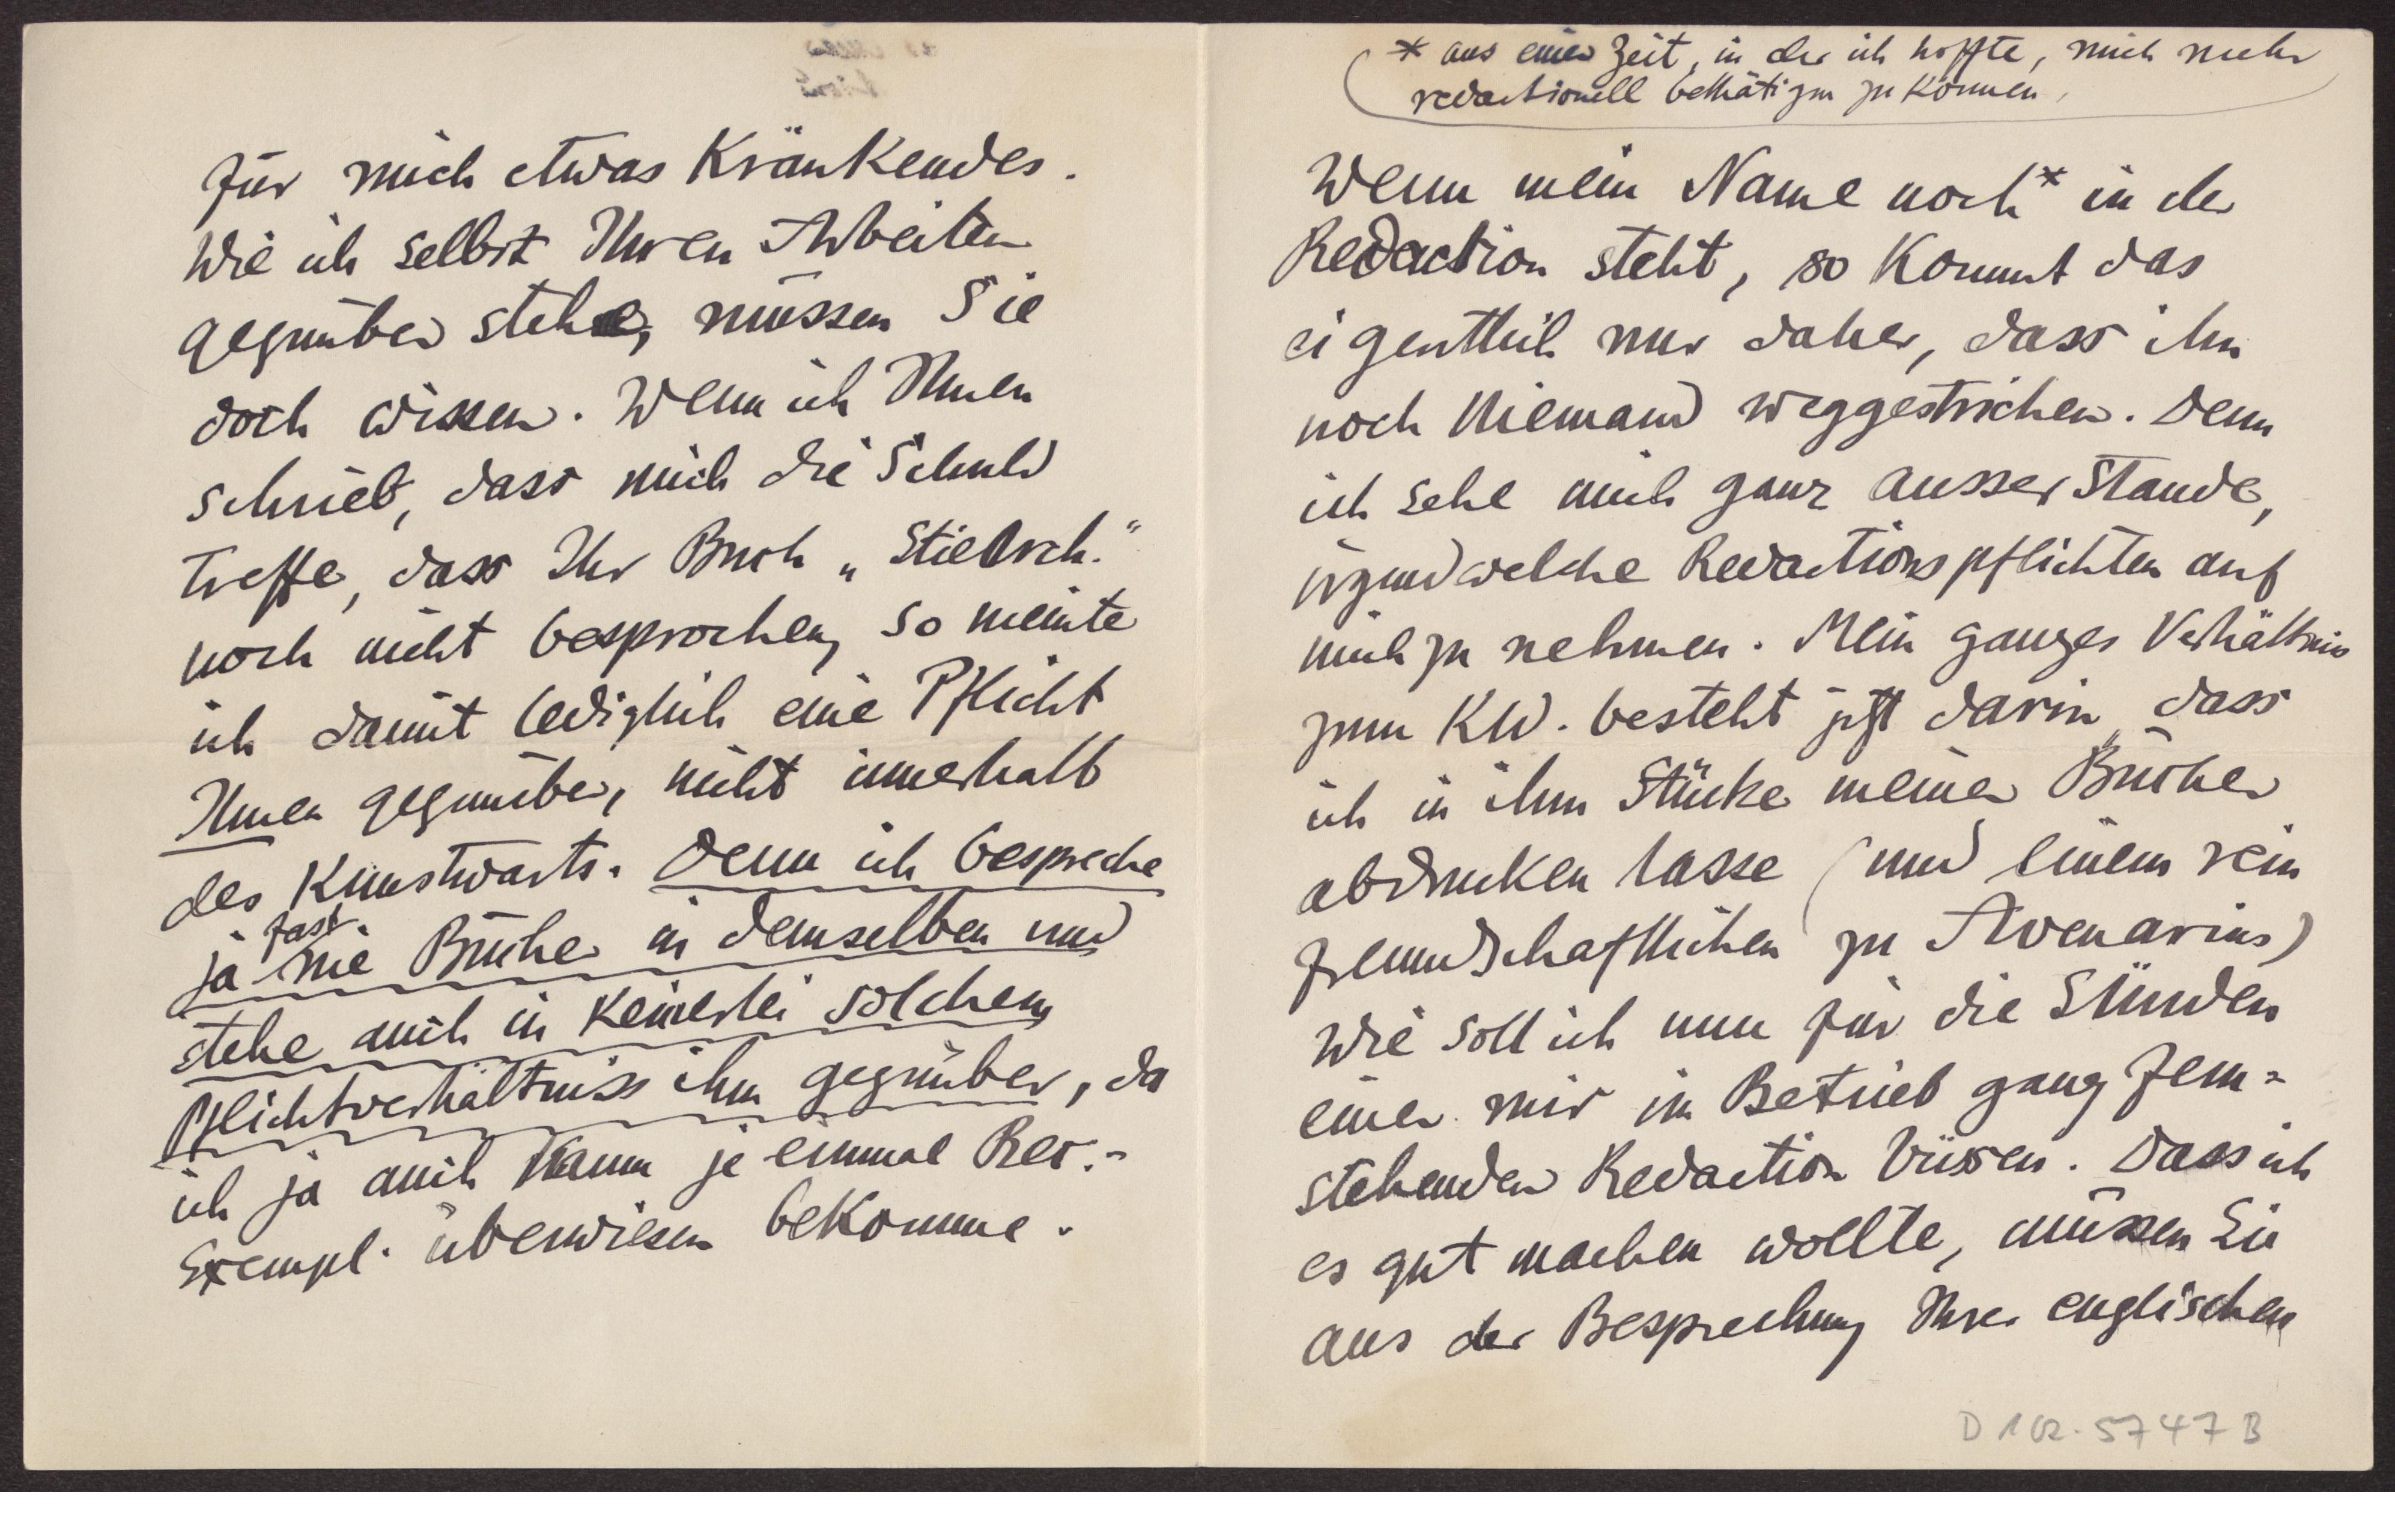 für mich etwas Kränkendes.
Wie ich selbst Ihren Arbeiten
gegenüber stehe, müssen Sie
doch wissen. Wenn ich Ihnen
schrieb, dass mich die Schuld
treffe, dass Ihr Buch „Stilarch."
noch nicht besprochen, so meinte
ich damit lediglich eine Pflicht
Ihnen gegenüber, nicht innerhalb
des Kunstwarts. Denn ich bespreche
ja fast nie Bücher in demselben und
stehe auch in keinerlei solchem
Pflichtverhältniss ihm gegenüber, da
ich ja auch kaum je einmal Rec.-
Exempl. überwiesen bekomme.
* aus einer Zeit, in der ich hoffte, mich mehr
redactionell bethätigen zu können.
Wenn mein Name noch* in der
Redaction steht, so kommt das
eigentlich nur daher, dass ihn
noch Niemand weggestrichen. Denn
ich sehe mich ganz ausser Stande,
irgendwelche Redactionspflichten auf
mich zu nehmen. Mein ganzes Verhältnis
zum KW. besteht jetzt darin, dass
ich in ihm Stücke meiner Bücher
abdrucken lasse (und einem rein
freundschaftlichen zu Avenarius)
Wie soll ich nun für die Sünden
einer mir im Betrieb ganz fern-
stehenden Redaction büssen. Dass ich
es gut machen wollte, müssen Sie
aus der Besprechung Ihrer englischen
D 102.5747 B